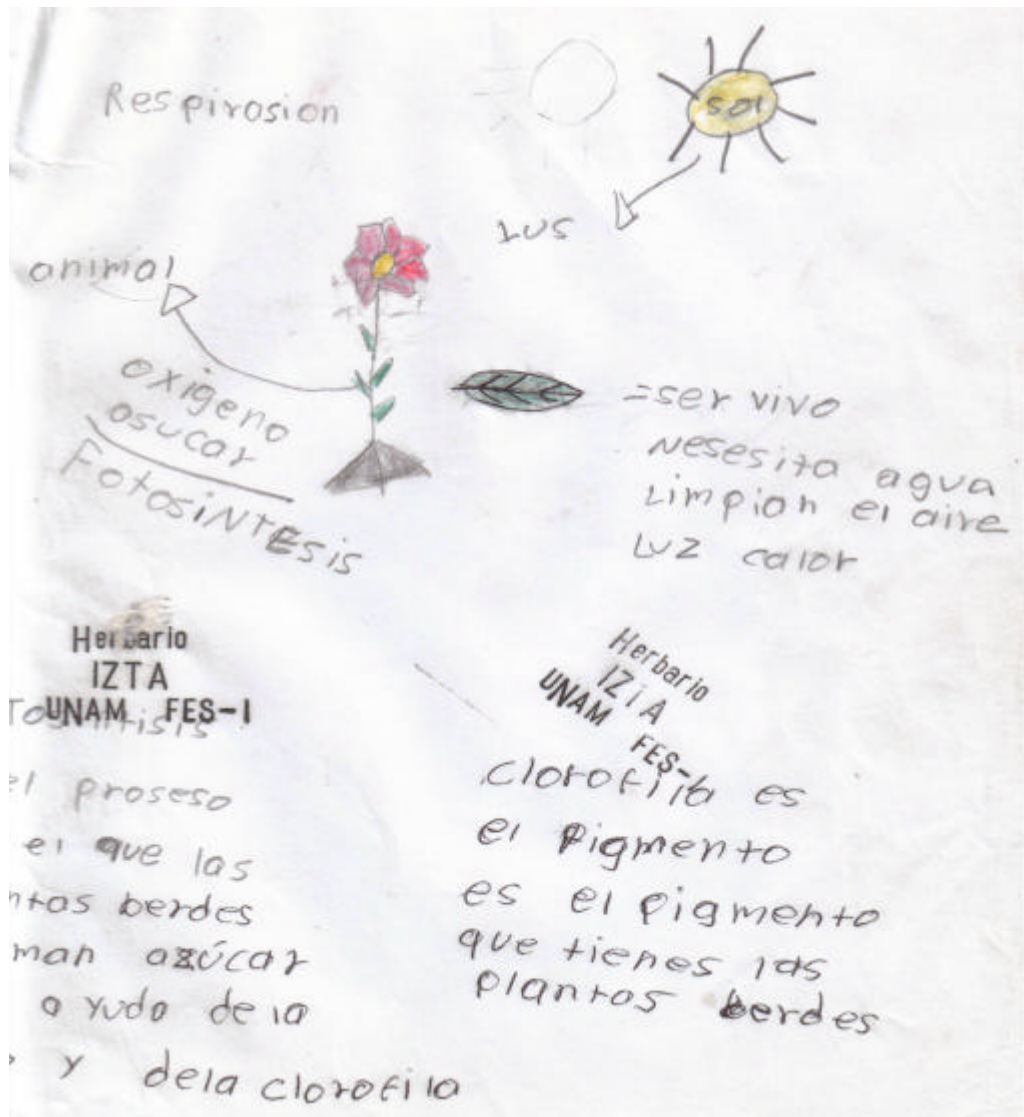 Respirosion
sol
Lus
animal
oxigeno
osucar
Fotosintesis
=ser vivo
Nesesita agua
Limpian el aire
Luz calor
Herbario
IZTA
UNAM FES-I
el proseso
el que las
berdes
azúcar
a yuda de la
y dela clorofila
Herbario
IZTA
UNAM
FES-I
clorofila es
el pigmento
es el pigmento
que tienes las
plantas berdes